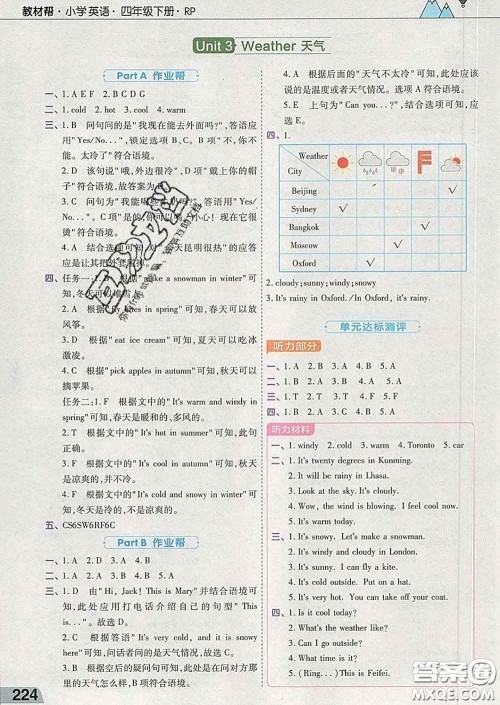 教材帮·小学英语·四年级下册·RP
Unit 3 Weather 天气
Part A 作业帮
一、AEF
二、1. cold 2. hot 3. cool 4. warm
三、1. B 问句问的是"我现在能去外面吗?",答语应
用"Yes/No...",锁定选项 B、C。B 项"不,你不
能。太冷了"符合语境。
2. D 该句说"哦,外边很冷",D 项"戴上你的帽
子"符合语境。故答案为
3. C 问句为"我能
用"Yes/No..."。C 项"
它很烫!"符合语境。
4. A 结合选项可知
应是让其把外套脱掉。
四、任务一:1. A 根据"make a snowman in winter"可
知,冬天可以堆雪人。
2. A 根据"fly kites in spring"可知,春天可以放
风筝。
3. C 根据"eat ice cream"可知,夏天可以吃冰
冰激凌。
4. C 根据"pick apples in autumn"可知,秋天可以
摘苹果。
任务二:1. F 根据文中的"It's warm and windy in
spring"可知,春天是暖和的,多风的。
2. T 根据文中的"It's hot in summer"可知,此
句正确。
3. F 根据文中的"It's cool in autumn"可知,秋
天是凉爽的,并不冷。
4. F 根据文中的"It's cold and snowy in winter"
可知,冬天是寒冷的,不是凉爽的。
五、CS6SW6RF6C
Part B 作业帮
一、1. A 2. D 3. A 4. B
二、1. A 2. B 3. D 4. C 5. A
三、1. D 由"Hi, Jack! This is Mary"并结合语境可
知,此处应用打电话介绍自己的句型"This
is...",故选 D。
2. C 根据答语"It's very cold, and it's cloudy
now"可知,问的是天气情况。故选 C。
3. B 根据空后的疑问句可知,此处为询问对方
的地方天气怎么样。再结合选项可知选 B。
4. A 根据后面的"天气不太冷"可知,此处应该
说的是温度或者天气情况。故选 A。
5. E 上句为"Can you...?",结合选项可知,应
选 E。
四、1.
Weather
City
Beijing √
Sydney √
Bangkok √
Moscow √
Oxford √
2. cloudy; sunny; windy; snowy
3. It's rainy in Oxford. /In Oxford, it's rainy.
单元达标测评
听力部分
一、1. A 2. B 3. A 4. B 5. A
二、1. B 2. A 3. B 4. A 5. B
三、1. F 2. F 3. T 4. F 5. T
四、1. B 2. A 3. A 4. B 5. B
听力材料
一、1. windy 2. cold 3. warm 4. Toronto 5. car
二、1. It's twenty degrees in Kunming.
2. It will be rainy in Lhasa.
3. Look at the sky. It's cloudy.
4. Wow, the wind is blowing. I feel cold.
5. It's warm today.
三、1. It's snowy. Let's make a snowman.
2. It's windy and cloudy in London.
3. It's sunny. I can fly a kite.
4. It's cold outside. Put on a hat.
5. It's very hot. You can take off your coat.
四、1. Is it cool today?
2. What's the weather like?
3. Can I make a snowman?
4. What time is it?
5. (Ring...) Hi! This is Feifei.
224
答案圈
MXQE.COM